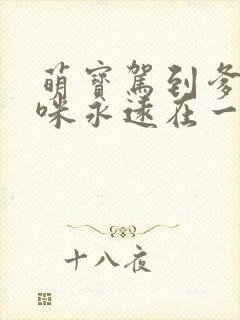 萌寶駕到爹
咪永遠在一
十八夜